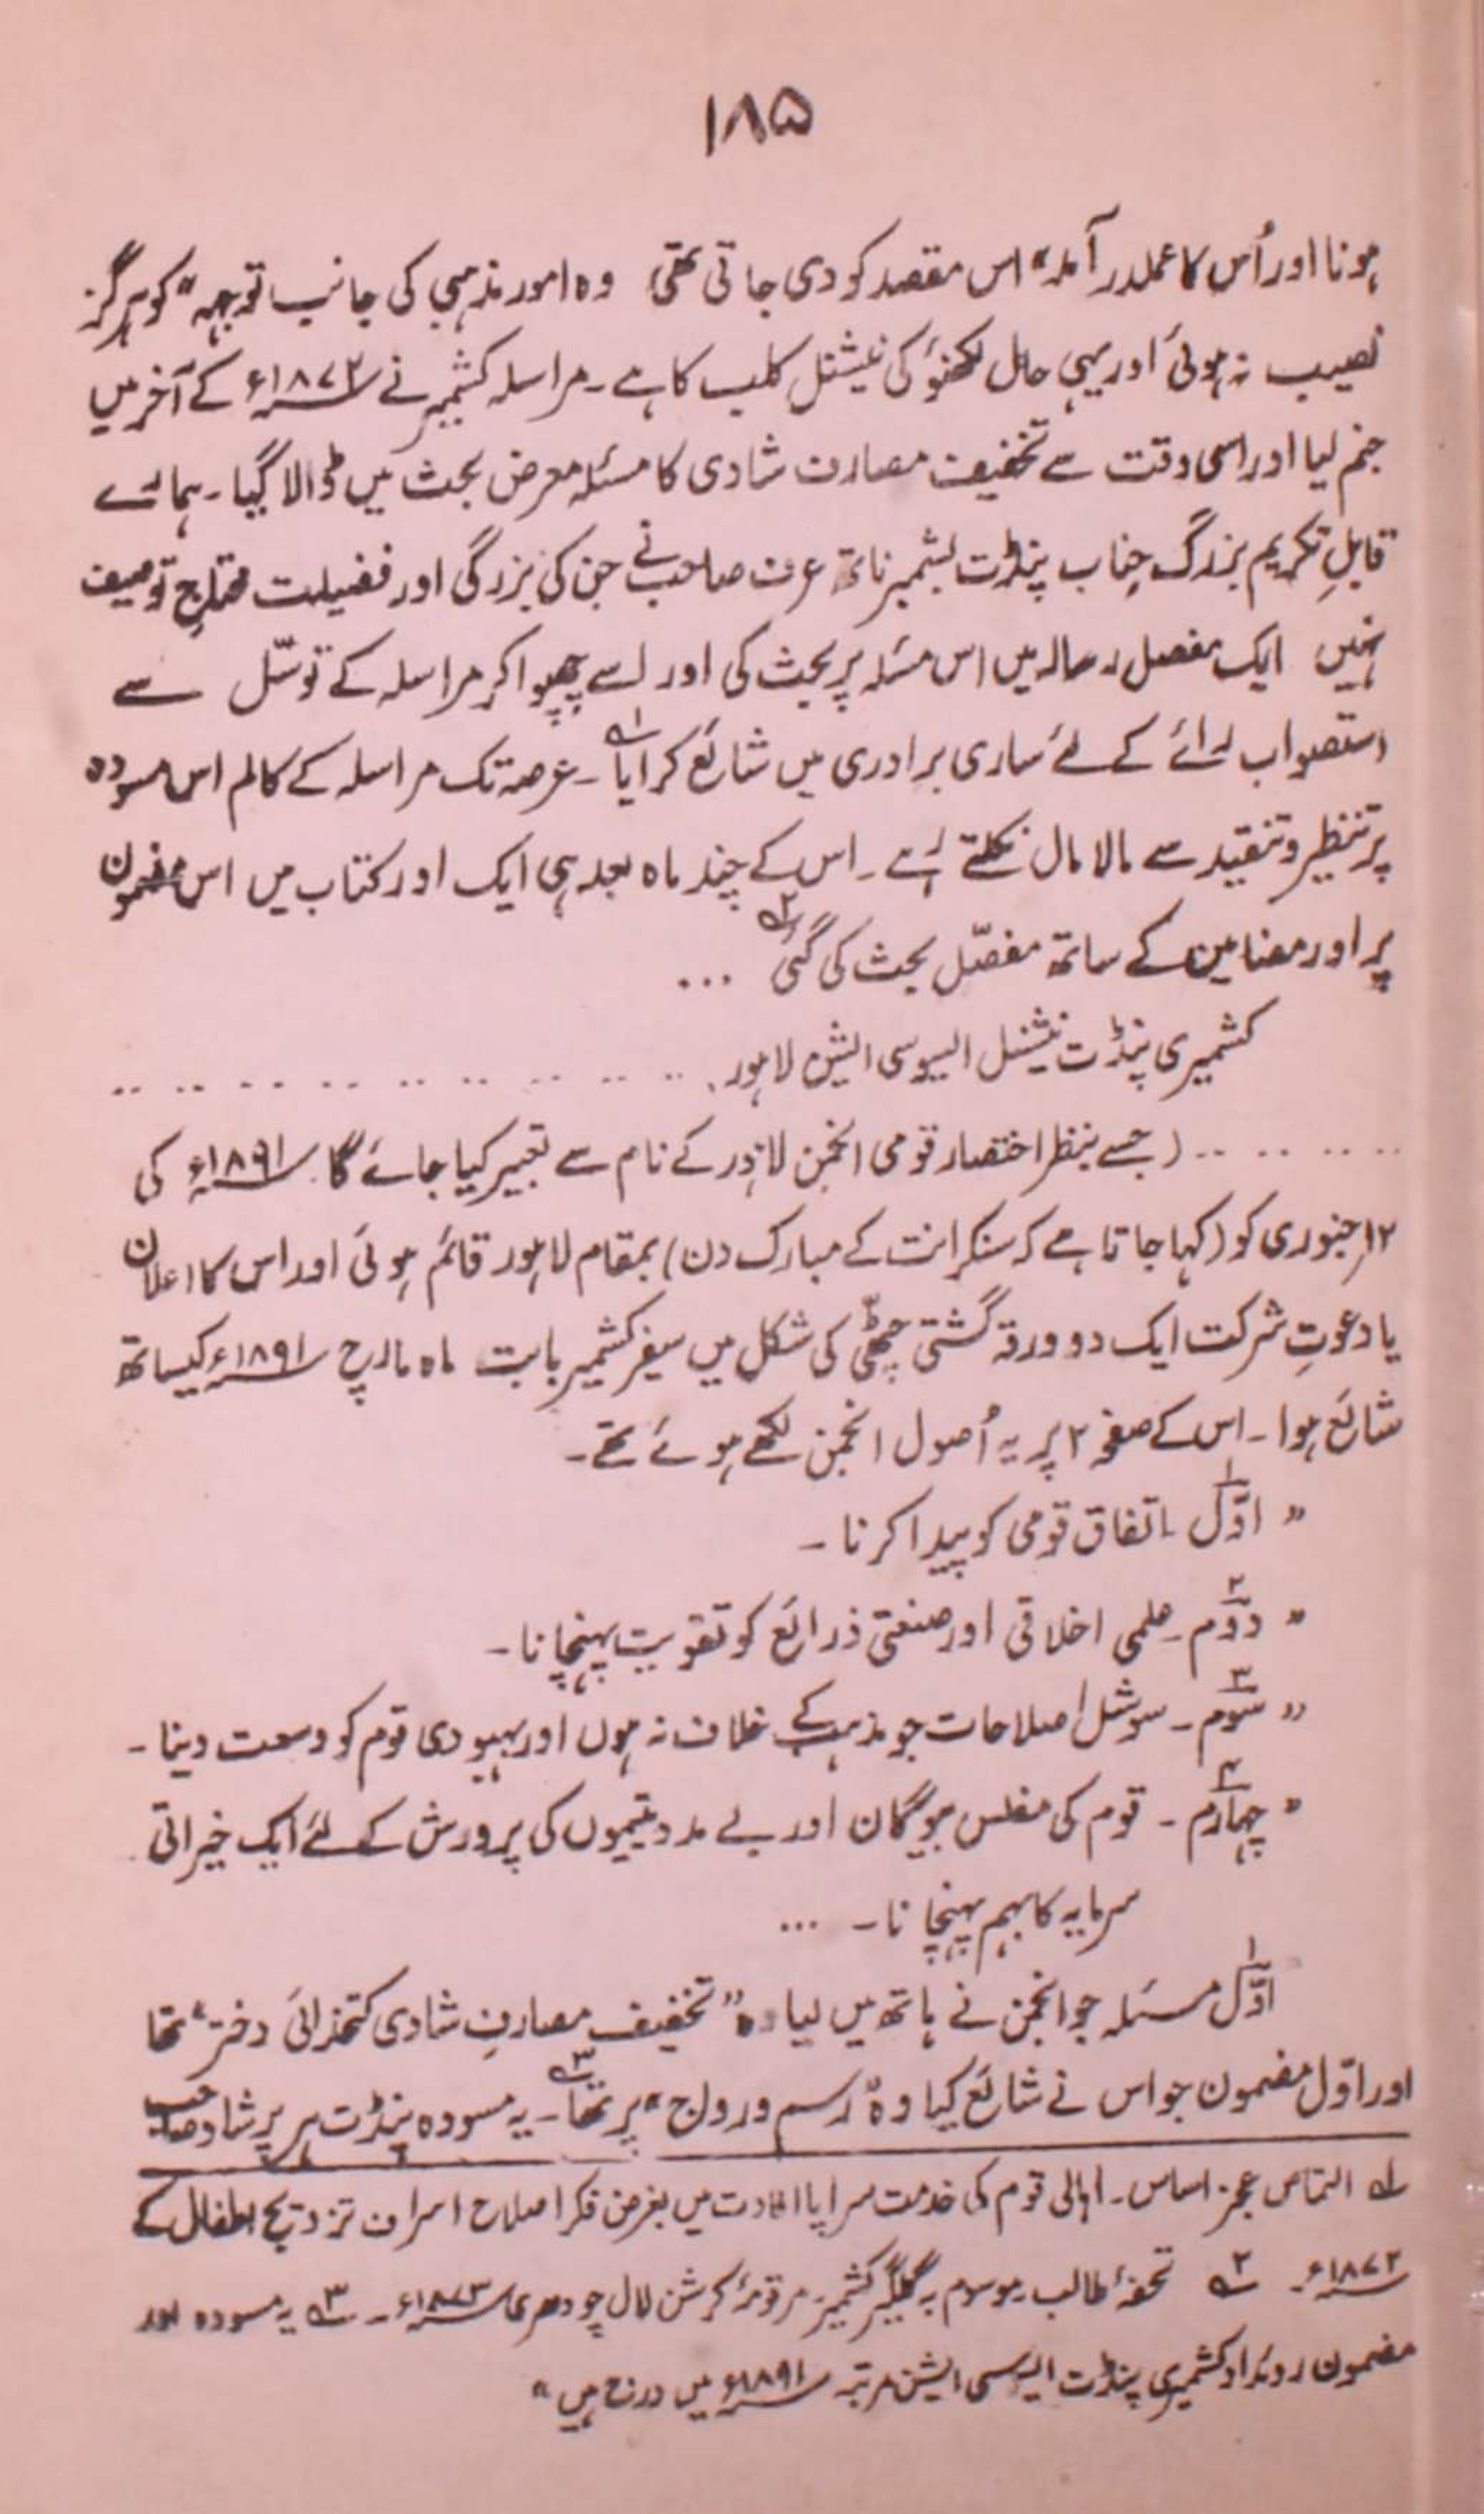 ۱۸۵
ہونا اور اُس کا عملدر آمد" اس مقصد کو دی جاتی تھی، وہ امور مذہبی کی جانب توجہ" کو ہرگز
نصیب نہ ہوئی اور یہی حال لکھنؤ کی نیشنل کلب کا ہے۔ مراسلہ کشمیر نے ۱۸۷۲ء کے آخر میں
جنم لیا اور اسی وقت سے تخفیف مصارف شادی کا مسئلہ معرض بحث میں ڈالا گیا۔ ہمارے
قابلِ تکریم بزرگ جناب پنڈت بشمبر ناتھ عرف صاحب نے جن کی بزرگی اور فضیلت محتاجِ توصیف
نہیں ایک مفصل رسالہ میں اس مسئلہ پر بحث کی اور اسے چھپوا کر مراسلہ کے توسّل سے
استصواب رائے کے لئے ساری برادری میں شائع کرایا۱؎۔ عرصہ تک مراسلہ کے کالم اس مسودہ
پر تنظیر و تنقید سے مالا مال نکلتے رہے۔ اس کے چند ماہ بعد ہی ایک اور کتاب میں اس مضمون
پر اور مضامین کے ساتھ مفصّل بحث کی گئی۲؎ ...
کشمیری پنڈت نیشنل ایسوسی ایشن لاہور ․․ ․․ ․․ ․․ ․․ ․․ ․․ ․․
․․ ․․ ․․ ․․ (جسے بنظر اختصار قومی انجمن لاہور کے نام سے تعبیر کیا جائے گا۔ ۱۸۹۱ء کی
۱۲؍ جنوری کو (کہا جاتا ہے کہ سنکرانت کے مبارک دن) بمقام لاہور قائم ہوئی اور اس کا اعلان
یا دعوتِ شرکت ایک دو ورقہ گشتی چٹھی کی شکل میں سفیر کشمیر بابت ماہ مارچ ۱۸۹۱ء کیساتھ
شائع ہوا۔ اس کے صفحہ ۲ پر یہ اُصول انجمن لکھے ہوئے تھے۔
" اوّل۱۔ اتفاق قومی کو پیدا کرنا۔
" دوّم۲۔ علمی اخلاقی اور صنعتی ذرائع کو تقویت پہنچانا۔
" سوّم۳۔ سوشل اصلاحات جو مذہب کے خلاف نہ ہوں اور بہبودی قوم کو وسعت دینا۔
" چہارم۴۔ قوم کی مفلس بیوگان اور بے مدد یتیموں کی پرورش کے لئے ایک خیراتی
سرمایہ کا بہم پہنچانا۔ ...
اوّل۱ مسئلہ جو انجمن نے ہاتھ میں لیا وہ "تخفیف مصارفِ شادی کتخدائی دختر" تھا
اور اوّل مضمون جو اس نے شائع کیا وہ "رسم و رواج" پر تھا۳؎۔ یہ مسودہ پنڈت ہر پرشاد صاحب
۱؎ التماس عجز اساس۔ اہالی قوم کی خدمت سراپا افادت میں بغرض فکر اصلاح اسراف تزویج اطفال کے
۱۸۷۲ء۔ ۲؎ تحفۂ طالب موسوم بہ گلگیر کشمیر مرقومہ کرشن لال چودھری ۱۸۷۳ء۔ ۳؎ یہ مسودہ اور
مضمون روئداد کشمیری پنڈت ایسوسی ایشن مرتبہ ۱۸۹۱ء میں درج ہیں"